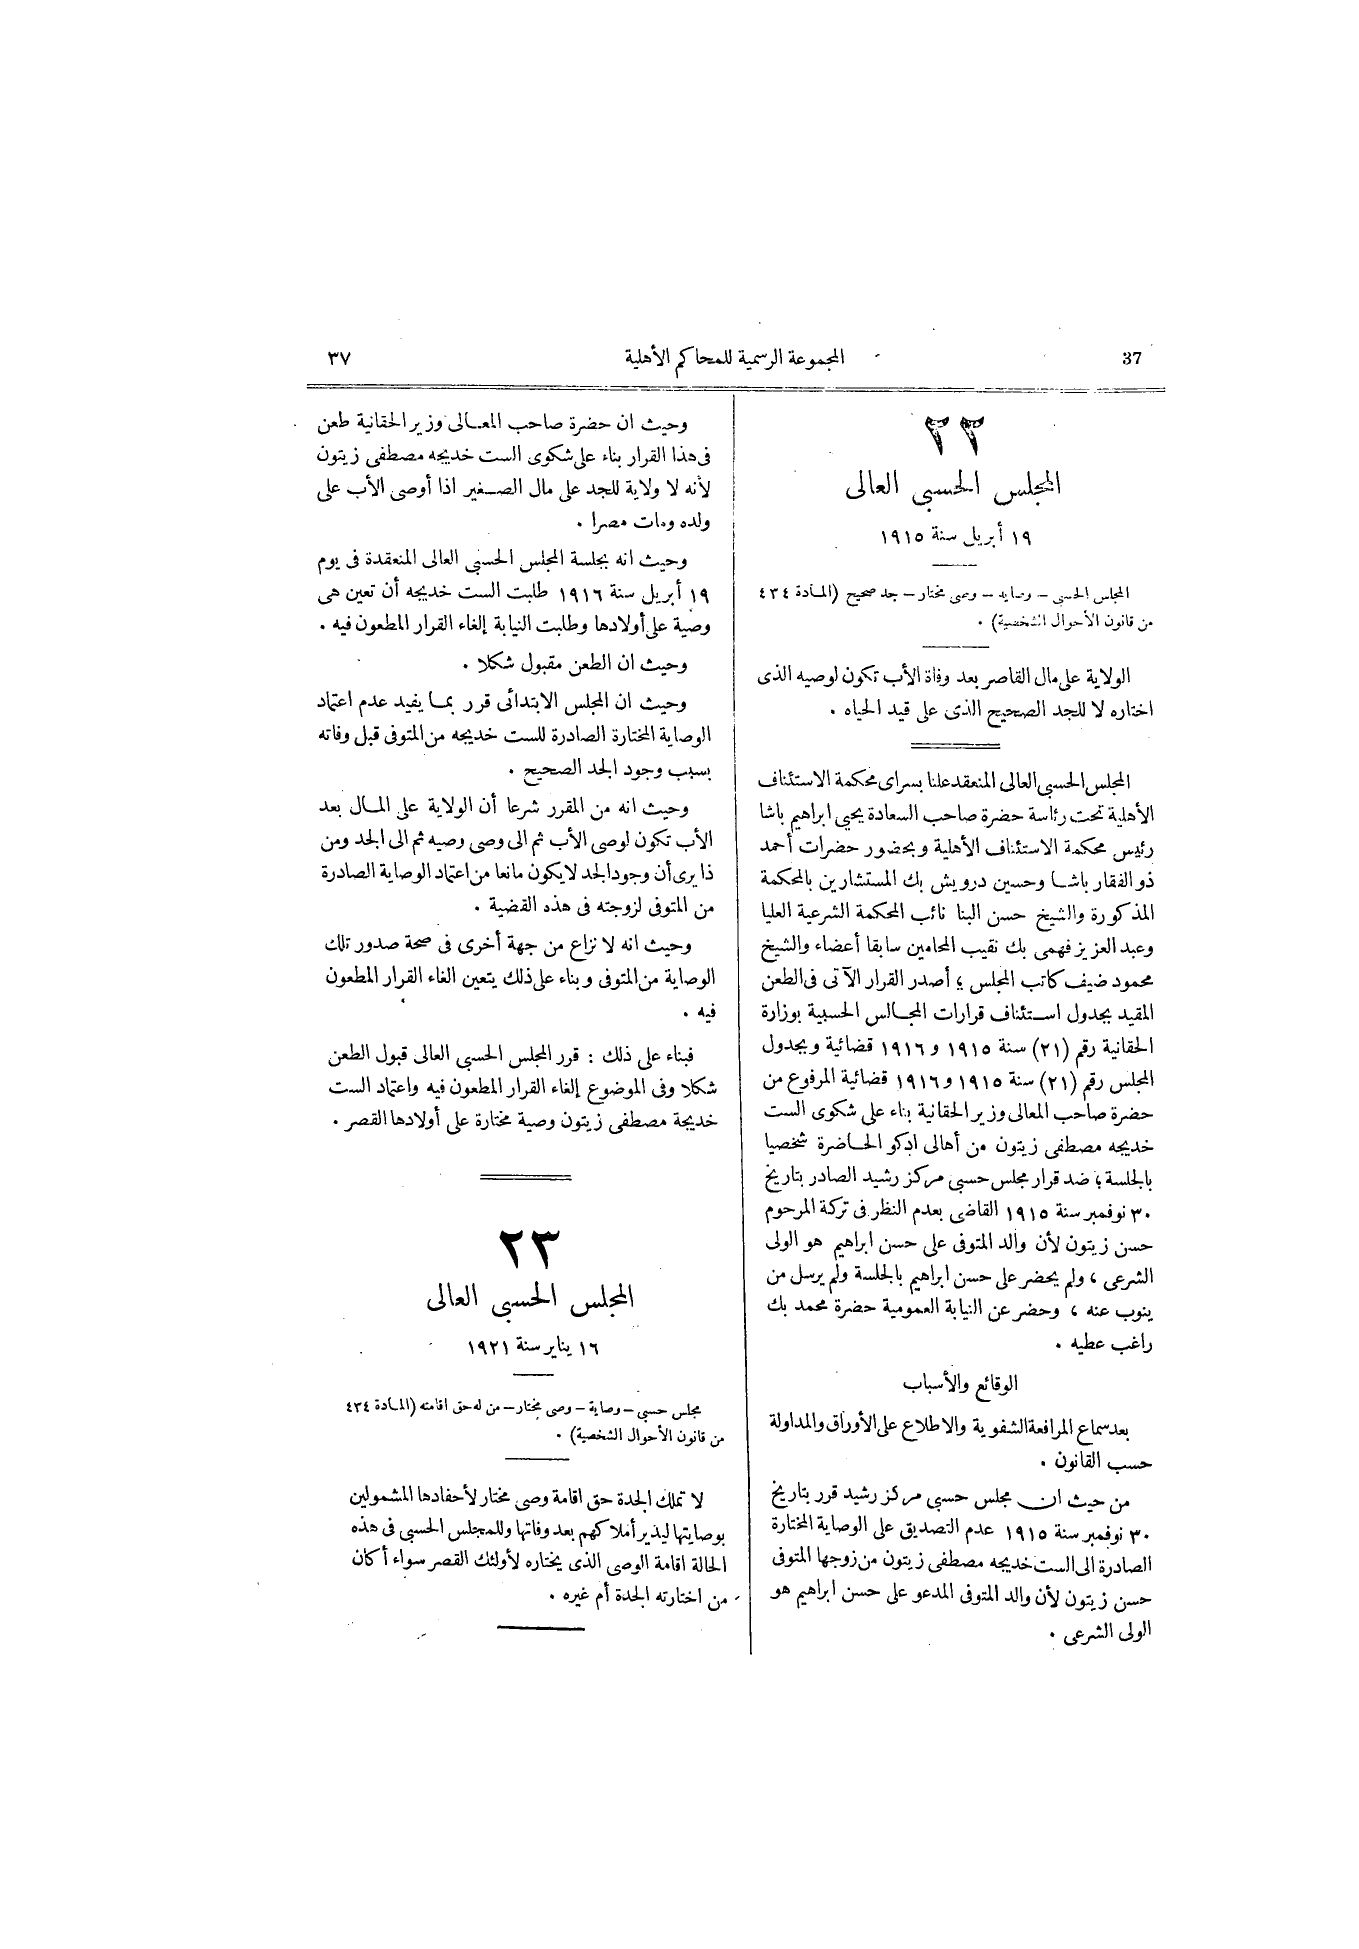 37
المجموعة الرسمية للمحاكم الأهلية
٣٧
٢٢
المجلس الحسبى العالى
١٩ أبريل سنة ١٩١٥
المجلس الحسبى – وصاية – وصى مختار – جد صحيح (المادة ٤٣٤
من قانون الأحوال الشخصية) .
الولاية على مال القاصر بعد وفاة الأب تكون لوصيه الذى
اختاره لا للجد الصحيح الذى على قيد الحياه .
المجلس الحسبى العالى المنعقد علنا بسراى محكمة الاستئناف
الأهلية تحت رئاسة حضرة صاحب السعادة يحيى ابراهيم باشا
رئيس محكمة الاستئناف الأهلية وبحضور حضرات أحمد
ذو الفقار باشا وحسين درويش بك المستشارين بالمحكمة
المذكورة والشيخ حسن البنا نائب المحكمة الشرعية العليا
وعبد العزيز فهمى بك نقيب المحامين سابقا أعضاء والشيخ
محمود ضيف كاتب المجلس ؛ أصدر القرار الآتى فى الطعن
المقيد بجدول استئناف قرارات المجالس الحسبية بوزارة
الحقانية رقم (٢١) سنة ١٩١٥ و ١٩١٦ قضائية وبجدول
المجلس رقم (٢١) سنة ١٩١٥ و ١٩١٦ قضائية المرفوع من
حضرة صاحب المعالى وزير الحقانية بناء على شكوى الست
خديجه مصطفى زيتون من أهالى ادكو الحاضرة شخصيا
بالجلسة ؛ ضد قرار مجلس حسبى مركز رشيد الصادر بتاريخ
٣٠ نوفمبر سنة ١٩١٥ القاضى بعدم النظر فى تركة المرحوم
حسن زيتون لأن والد المتوفى على حسن ابراهيم هو الولى
الشرعى ، ولم يحضر على حسن ابراهيم بالجلسة ولم يرسل من
ينوب عنه ، وحضر عن النيابة العمومية حضرة محمد بك
راغب عطيه .
الوقائع والأسباب
بعد سماع المرافعة الشفوية والاطلاع على الأوراق والمداولة
حسب القانون .
من حيث ان مجلس حسبى مركز رشيد قرر بتاريخ
٣٠ نوفمبر سنة ١٩١٥ عدم التصديق على الوصاية المختارة
الصادرة الى الست خديجه مصطفى زيتون من زوجها المتوفى
حسن زيتون لأن والد المتوفى المدعو على حسن ابراهيم هو
الولى الشرعى .
وحيث ان حضرة صاحب المعالى وزير الحقانية طعن
فى هذا القرار بناء على شكوى الست خديجه مصطفى زيتون
لأنه لا ولاية للجد على مال الصغير اذا أوصى الأب على
ولده ومات مصرا .
وحيث انه بجلسة المجلس الحسبى العالى المنعقدة فى يوم
١٩ أبريل سنة ١٩١٦ طلبت الست خديجه أن تعين هى
وصية على أولادها وطلبت النيابة إلغاء القرار المطعون فيه .
وحيث ان الطعن مقبول شكلا .
وحيث ان المجلس الابتدائى قرر بما يفيد عدم اعتماد
الوصاية المختارة الصادرة للست خديجه من المتوفى قبل وفاته
بسبب وجود الجد الصحيح .
وحيث انه من المقرر شرعا أن الولاية على المال بعد
الأب تكون لوصى الأب ثم الى وصى وصيه ثم الى الجد ومن
ذا يرى أن وجود الجد لا يكون مانعا من اعتماد الوصاية الصادرة
من المتوفى لزوجته فى هذه القضية .
وحيث انه لا نزاع من جهة أخرى فى صحة صدور تلك
الوصاية من المتوفى وبناء على ذلك يتعين الغاء القرار المطعون
فيه .
فبناء على ذلك : قرر المجلس الحسبى العالى قبول الطعن
شكلا وفى الموضوع إلغاء القرار المطعون فيه واعتماد الست
خديجة مصطفى زيتون وصية مختارة على أولادها القصر .
٢٣
المجلس الحسبى العالى
١٦ يناير سنة ١٩٢١
مجلس حسبى – وصاية – وصى مختار – من له حق اقامته (المادة ٤٣٤
من قانون الأحوال الشخصية) .
لا تملك الجدة حق اقامة وصى مختار لأحفادها المشمولين
بوصايتها ليدير أملاكهم بعد وفاتها وللمجلس الحسبى فى هذه
الحالة اقامة الوصى الذى يختاره لأولئك القصر سواء أكان
من اختارته الجدة أم غيره .